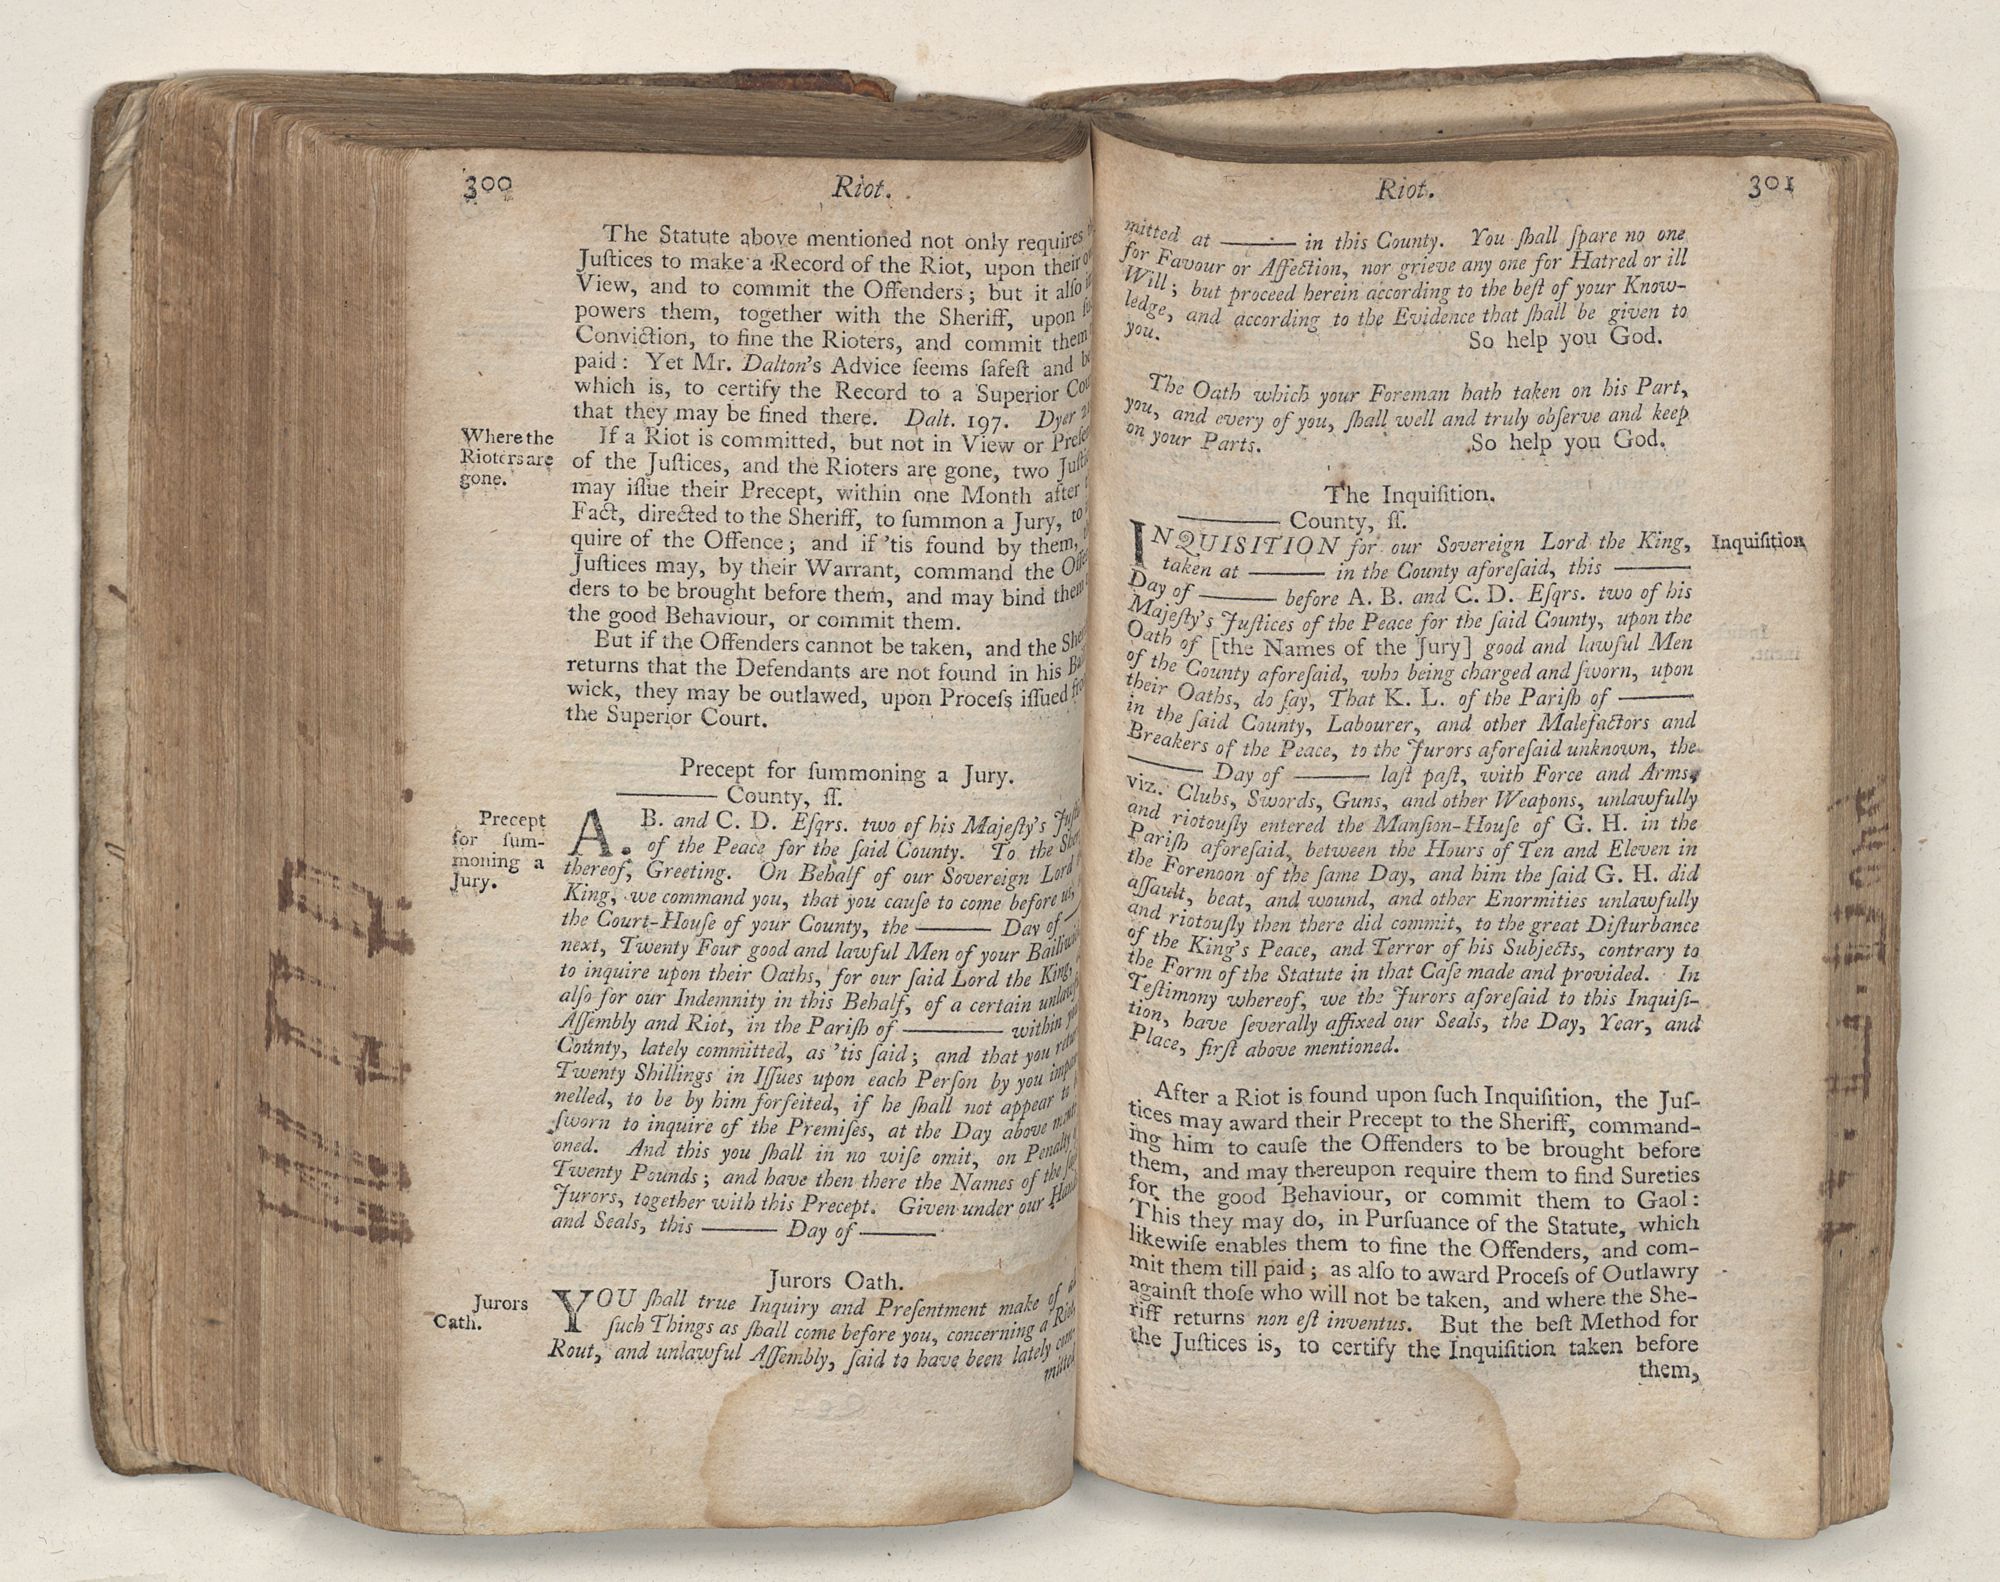 300
Riot.
The Statute above mentioned not only requires
Juſtices to make a Record of the Riot, upon their
View, and to commit the Offenders; but it alſo
powers them, together with the Sheriff, upon
Conviction, to fine the Rioters, and commit them
paid: Yet Mr. Dalton's Advice ſeems ſafeſt and
which is, to certify the Record to a Superior
that they may be fined there. Dalt. 197. Dyer
Where the
Rioters are
gone.
If a Riot is committed, but not in View or
of the Juſtices, and the Rioters are gone, two
may iſſue their Precept, within one Month after
Fact, directed to the Sheriff, to ſummon a Jury, to
quire of the Offence; and if 'tis found by them,
Juſtices may, by their Warrant, command the
ders to be brought before them, and may bind them
the good Behaviour, or commit them.
But if the Offenders cannot be taken, and the
returns that the Defendants are not found in his
wick, they may be outlawed, upon Proceſs iſſued
the Superior Court.
Precept for ſummoning a Jury.
——— County, ſſ.
Precept
for ſum-
moning a
Jury.
A. B. and C. D. Eſqrs. two of his Majeſty's
of the Peace for the ſaid County. To the
thereof, Greeting. On Behalf of our Sovereign Lord
King, we command you, that you cauſe to come before us,
the Court-Houſe of your County, the ——— Day of
next, Twenty Four good and lawful Men of your
to inquire upon their Oaths, for our ſaid Lord the King,
alſo for our Indemnity in this Behalf, of a certain
Aſſembly and Riot, in the Pariſh of ——— within
County, lately committed, as 'tis ſaid; and that you
Twenty Shillings in Iſſues upon each Perſon by you impan-
nelled, to be by him forfeited, if he ſhall not appear to
ſworn to inquire of the Premiſes, at the Day above
oned. And this you ſhall in no wiſe omit, on Penalty
Twenty Pounds; and have then there the Names of the
Jurors, together with this Precept. Given under our
and Seals, this ——— Day of ———
Jurors Oath.
Jurors
Oath.
YOU ſhall true Inquiry and Preſentment make of
ſuch Things as ſhall come before you, concerning a
Rout, and unlawful Aſſembly, ſaid to have been lately com-
mitted
Riot.
301
mitted at ——— in this County. You ſhall ſpare no one
for Favour or Affection, nor grieve any one for Hatred or ill
Will; but proceed herein according to the beſt of your Know-
ledge, and according to the Evidence that ſhall be given to
you.
So help you God.
The Oath which your Foreman hath taken on his Part,
you, and every of you, ſhall well and truly obſerve and keep
on your Parts.
So help you God.
The Inquiſition.
——— County, ſſ.
INQUISITION for our Sovereign Lord the King,
Inquiſition
taken at ——— in the County aforeſaid, this ———
Day of ——— before A. B. and C. D. Eſqrs. two of his
Majeſty's Juſtices of the Peace for the ſaid County, upon the
Oath of [the Names of the Jury] good and lawful Men
of the County aforeſaid, who being charged and ſworn, upon
their Oaths, do ſay, That K. L. of the Pariſh of ———
in the ſaid County, Labourer, and other Malefactors and
Breakers of the Peace, to the Jurors aforeſaid unknown, the
——— Day of ——— laſt paſt, with Force and Arms,
viz. Clubs, Swords, Guns, and other Weapons, unlawfully
and riotouſly entered the Manſion-Houſe of G. H. in the
Pariſh aforeſaid, between the Hours of Ten and Eleven in
the Forenoon of the ſame Day, and him the ſaid G. H. did
aſſault, beat, and wound, and other Enormities unlawfully
and riotouſly then there did commit, to the great Diſturbance
of the King's Peace, and Terror of his Subjects, contrary to
the Form of the Statute in that Caſe made and provided. In
Teſtimony whereof, we the Jurors aforeſaid to this Inquiſi-
tion, have ſeverally affixed our Seals, the Day, Year, and
Place, firſt above mentioned.
After a Riot is found upon ſuch Inquiſition, the Juſ-
tices may award their Precept to the Sheriff, command-
ing him to cauſe the Offenders to be brought before
them, and may thereupon require them to find Sureties
for the good Behaviour, or commit them to Gaol:
This they may do, in Purſuance of the Statute, which
likewiſe enables them to fine the Offenders, and com-
mit them till paid; as alſo to award Proceſs of Outlawry
againſt thoſe who will not be taken, and where the She-
riff returns non eſt inventus. But the beſt Method for
the Juſtices is, to certify the Inquiſition taken before
them,